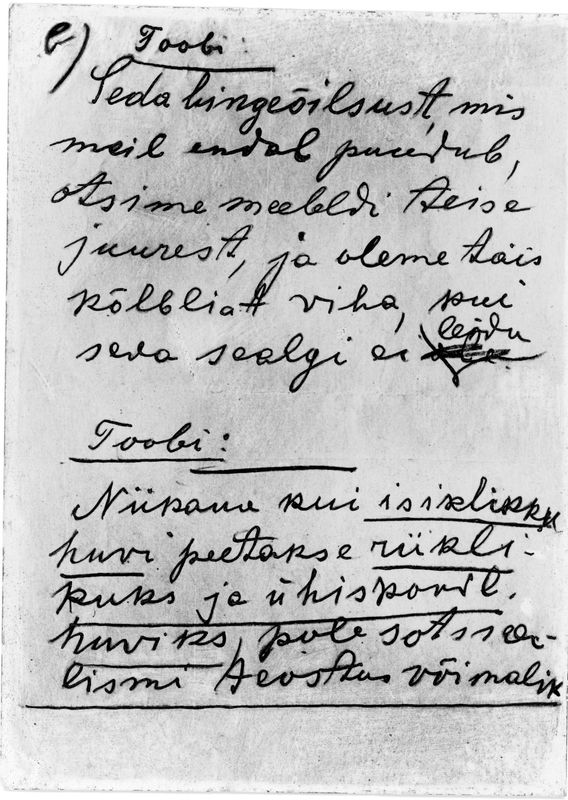 b) Toobi:
Seda hingeõilsust, mis
meil endal puudub,
otsime meeleldi teise
juurest, ja oleme täis
kõlbliat viha, kui
seda sealgi ei leidu
Toobi:
Niikaua kui isiklikku
huvi peetakse riikli-
kuks ja ühiskondl.
huviks, pole sotsia-
lismi teostus võimalik